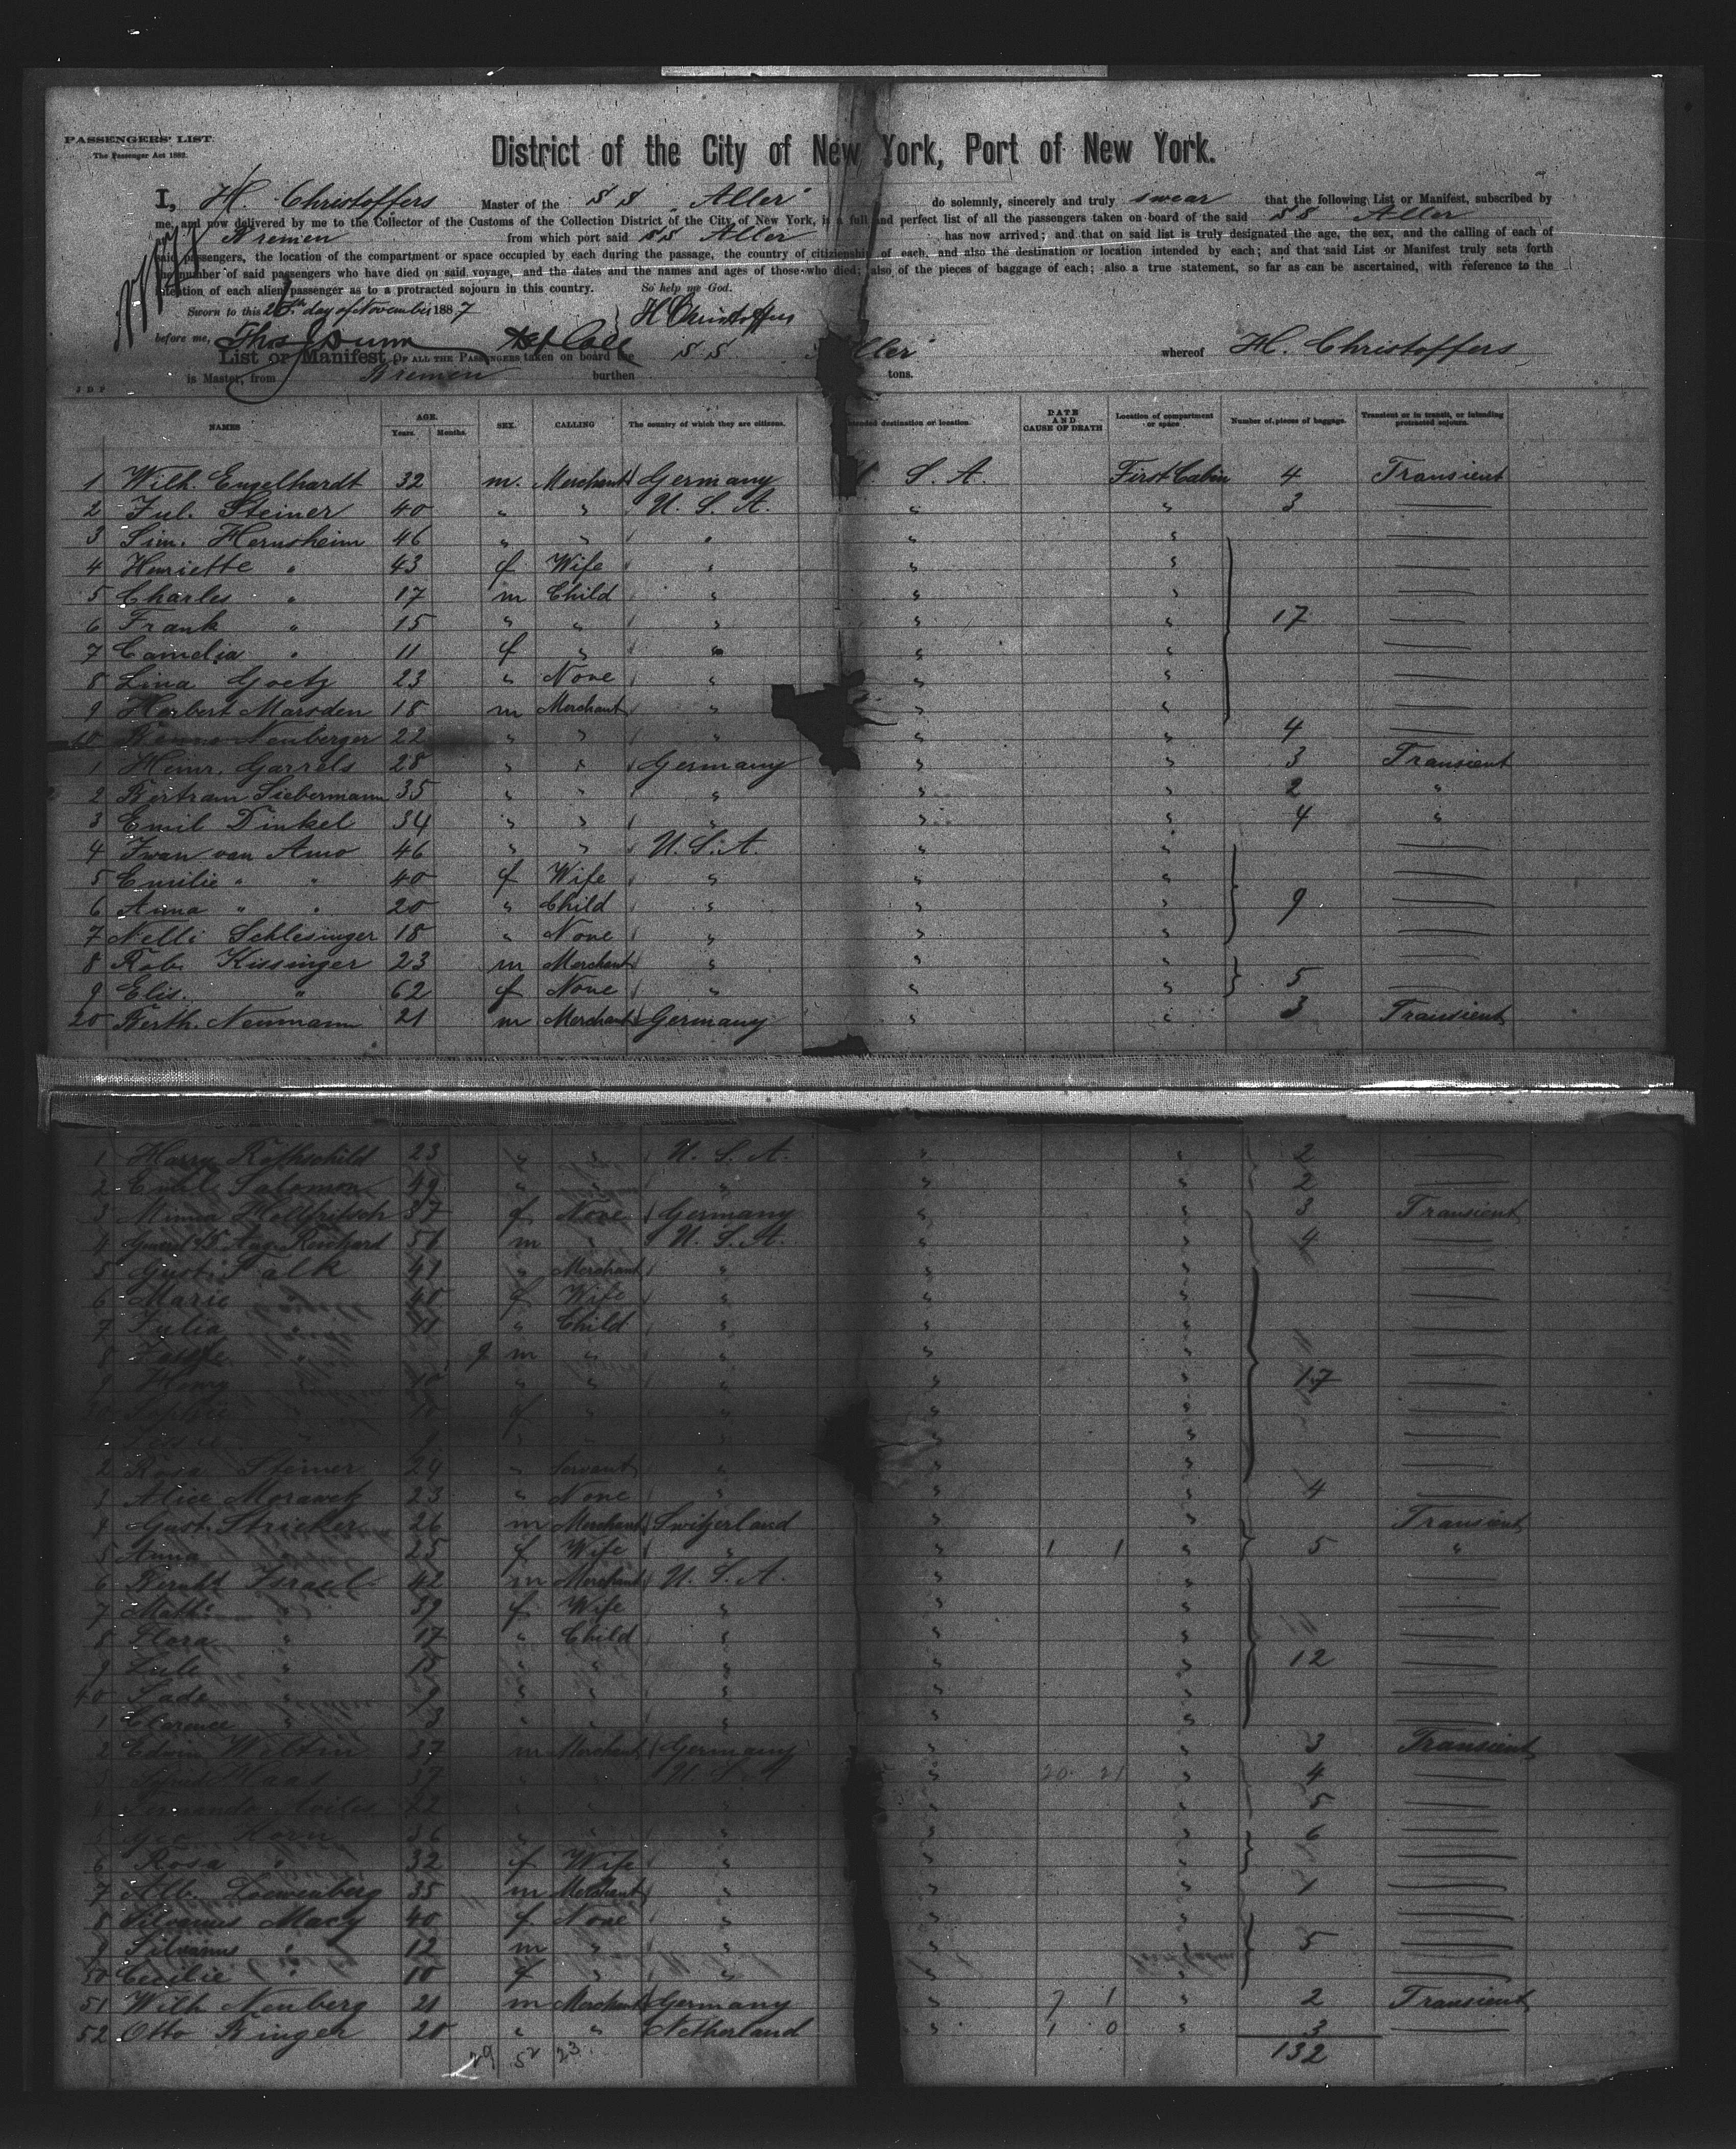 PASSENGERS' LIST.
The Passenger Act 1882.
District of the City of New York, Port of New York.
I, H. Christoffers Master of the S S „Aller" do solemnly, sincerely and truly swear that the following List or Manifest, subscribed by
me, and now delivered by me to the Collector of the Customs of the Collection District of the City of New York, is a full and perfect list of all the passengers taken on board of the said SS Aller
Bremen from which port said SS Aller has now arrived; and that on said list is truly designated the age, the sex, and the calling of each of
said passengers, the location of the compartment or space occupied by each during the passage, the country of citizenship of each, and also the destination or location intended by each; and that said List or Manifest truly sets forth
the number of said passengers who have died on said voyage, and the dates and the names and ages of those who died; also of the pieces of baggage of each; also a true statement, so far as can be ascertained, with reference to the
intention of each alien passenger as to a protracted sojourn in this country. So help me God.
Sworn to this day of November 1887 H Christoffers
before me, Thos Dunn Dep Coll
List or Manifest OF ALL THE PASSENGERS taken on board the S S Aller" whereof H. Christoffers
is Master, from Bremen burthen tons.
NAMES AGE. Years. Months. SEX. CALLING The country of which they are citizens. Intended destination or location. DATE AND CAUSE OF DEATH Location of compartment or space. Number of pieces of baggage. Transient or in transit, or intending protracted sojourn.
1 Wilh. Engelhardt 32 m. Merchant Germany S. A. First Cabin 4 Transient
2 Jul. Steiner 40 " " U. S. A. " " 3
3 Sim. Hernsheim 46 " " " " "
4 Henriette " 43 f Wife " " "
5 Charles " 17 m Child " " "
6 Frank " 15 " " " " " 17
7 Camelia " 11 f " " " "
8 Lina Goetz 23 " None " " "
9 Herbert Marsden 18 m Merchant " " "
10 Neuberger 22 " " " " " 4
1 Heinr. Garrels 28 " " Germany " " 3 Transient
2 Bertram Siebermann 35 " " " " " 2 "
3 Emil Dinkel 34 " " " " " 4 "
4 Iwan van Amo 46 " " U. S. A. " "
5 Emilie " " 40 f Wife " " "
6 Anna " " 20 " Child " " " 9
7 Nelli Schlesinger 18 " None " " "
8 Rob. Kissinger 23 m Merchant " " "
9 Elis. " 62 f None " " " 5
20 Berth. Neumann 21 m Merchant Germany " " 3 Transient
1 Harry Rothschild 23 " " U. S. A. " " 2
2 Emil Salomon 49 " " " " " 2
3 Minna 37 f None Germany " " 3 Transient
4 Aug. Reinhard m " U. S. A. " " 4
5 Gust. Falk 41 " Merchant " " "
6 Marie " 40 f Wife " " "
7 Julia " 11 " Child " " "
8 " 9 m " " " "
9 Henry " 10 " " " " " 17
30 Sophie " 10 f " " " "
2 Rosa Steiner 24 " Servant " " "
3 Alice Morawetz 23 " None " " " 4
4 Gust. Stricker 26 m Merchant Switzerland " " Transient
5 Anna " 25 f Wife " " 1 1 " 5 "
6 Israel 42 m Merchant U. S. A. " "
7 Math. " 39 f Wife " " "
8 Flora " 17 " Child " " "
9 Lule " 15 " " " " " 12
40 Sade " 9 " " " " "
1 Clarence " 3 " " " " "
2 Edwin Weltin 37 m Merchant Germany " " 3 Transient
3 Haas 37 U. S. A. " 20 21 " 4
4 Fernando Aviles 22 " " " " " 5
5 Geo Korn 36 " " " " " 6
6 Rosa " 32 f Wife " " "
7 Alb. Loewenberg 35 m Merchant " " " 1
8 Silvanus Macy 40 f None " " "
9 Silvanus " 12 m " " " " 5
50 Cecilie " 10 f " " " "
51 Wilh Neuberg 21 m Merchant Germany " 1 " 2 Transient
52 Otto Binger 20 " " Netherland " 1 0 " 3
29 52 23. 132